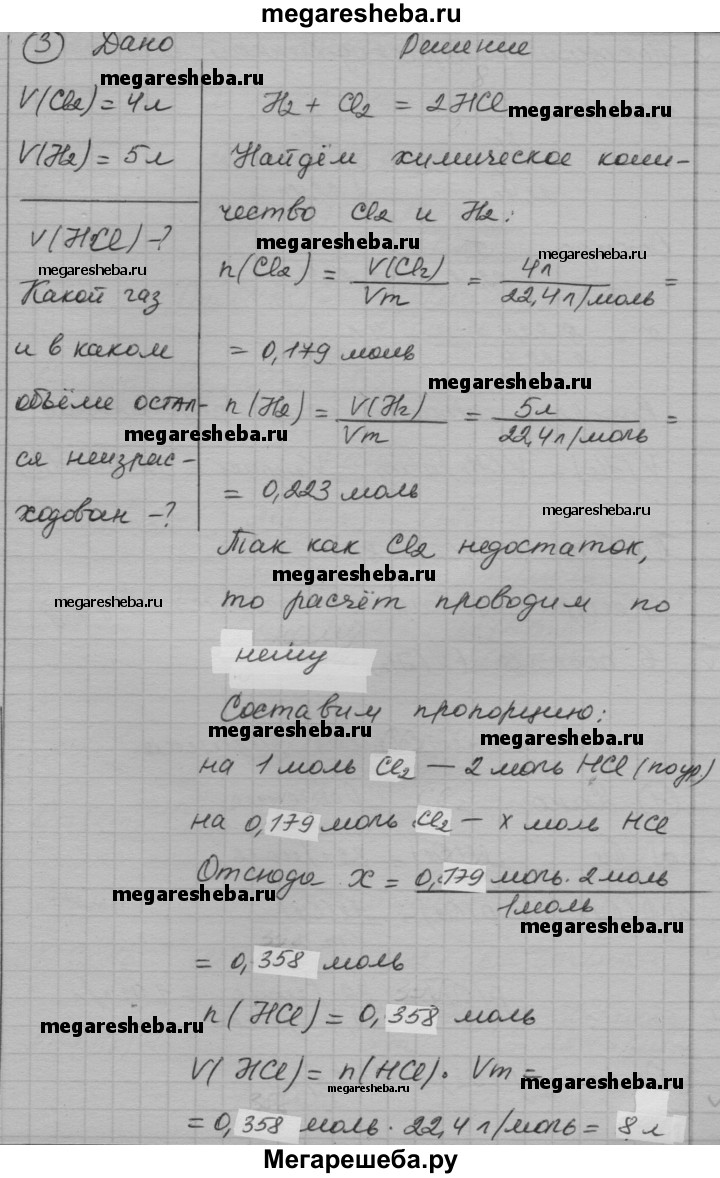 megaresheba.ru
③ Дано
Решение
megaresheba.ru
V(Cl2) = 4л
H2 + Cl2 = 2HCl
megaresheba.ru
V(H2) = 5л
Найдём химическое коли-
чество Cl2 и H2:
V(HCl) -?
megaresheba.ru
megaresheba.ru
megaresheba.ru
n(Cl2) = V(Cl2) / Vm = 4л / 22,4 л/моль =
Какой газ
и в каком
= 0,179 моль
megaresheba.ru
объёме остал-
n(H2) = V(H2) / Vm = 5л / 22,4 л/моль =
megaresheba.ru
ся неизрас-
= 0,223 моль
ходован -?
megaresheba.ru
Так как Cl2 недостаток,
megaresheba.ru
megaresheba.ru
то расчёт проводим по
нему
Составим пропорцию:
megaresheba.ru
megaresheba.ru
на 1 моль Cl2 — 2 моль HCl (по ур.)
на 0,179 моль Cl2 — x моль HCl
Отсюда x = 0,179 моль · 2 моль / 1 моль
megaresheba.ru
megaresheba.ru
= 0,358 моль
n(HCl) = 0,358 моль
megaresheba.ru
V(HCl) = n(HCl) · Vm =
megaresheba.ru
= 0,358 моль · 22,4 л/моль = 8 л
Мегарешеба.ру